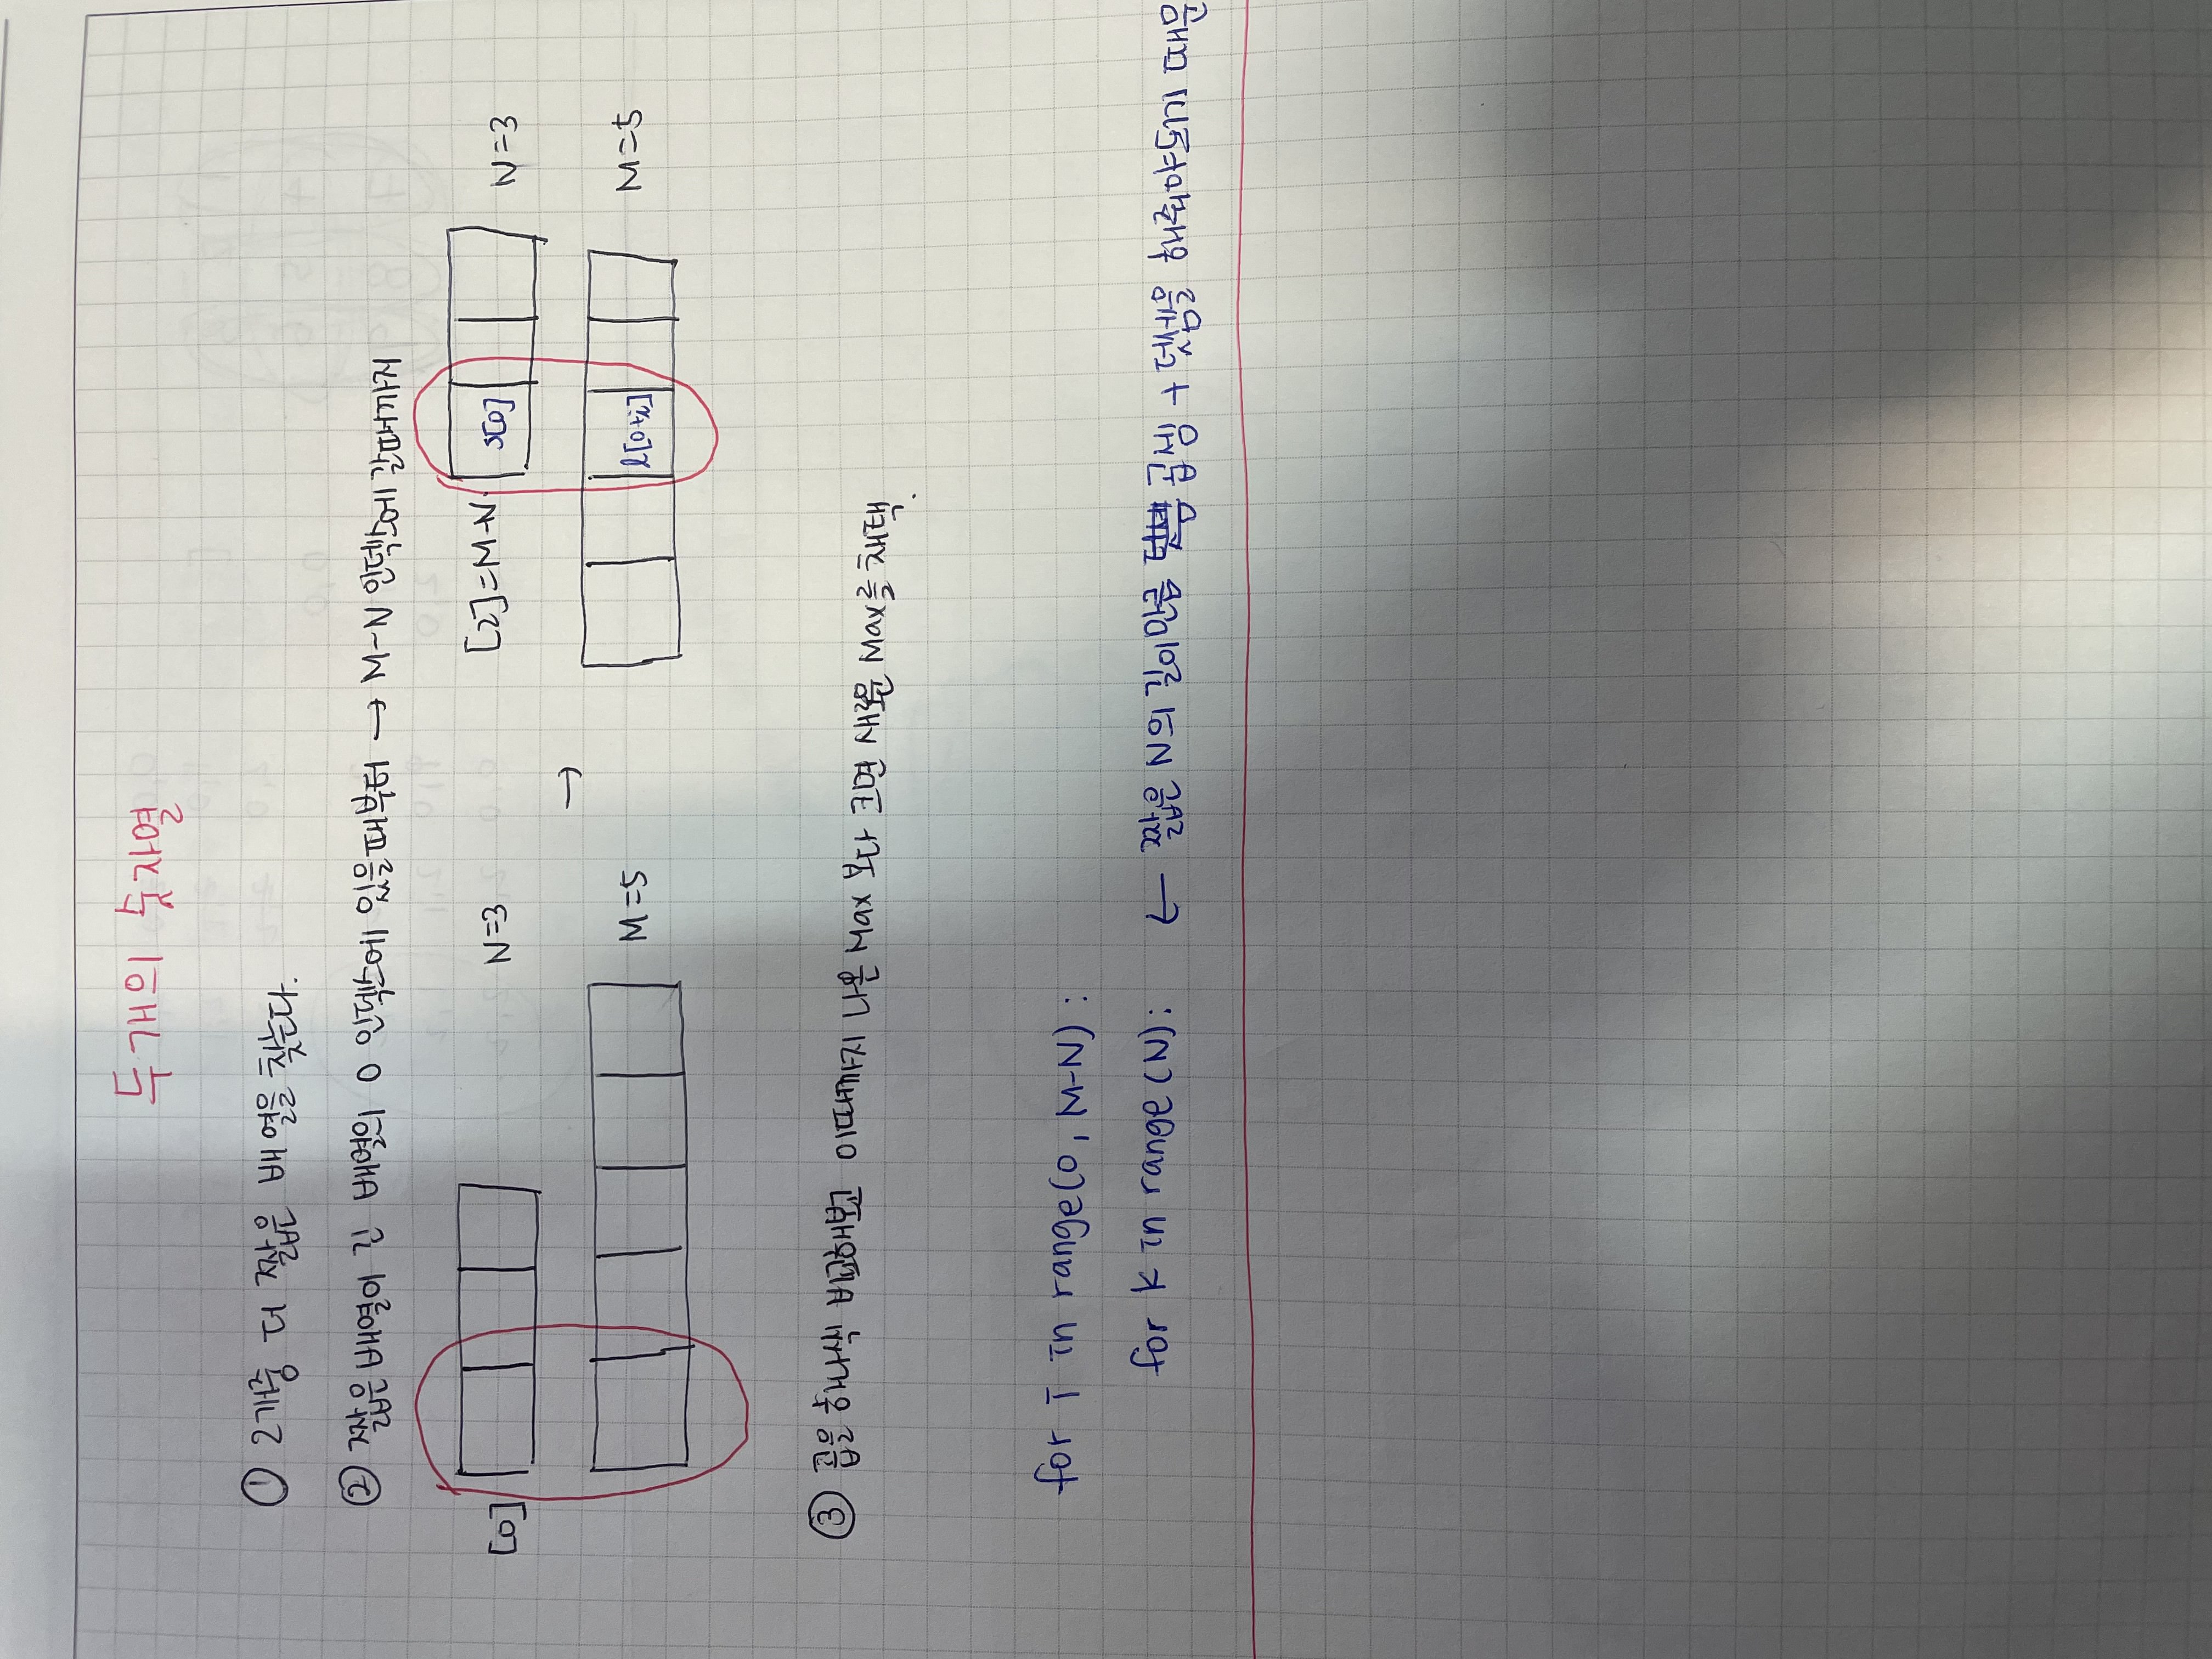 두개의 숫자열
① 2개중 더 짧은 배열을 찾는다.
② 짧은 배열이 긴 배열의 0 인덱스에 있을때부터 → M-N 인덱스에 갈때까지
[0] N=3
M=5
→
[2]=M-N s[0] N=3
l[0+i] M=5
③ 곱을 하나씩 비교해보고 이때까지 나온 Max 보다 크면 새로운 Max를 채택.
for i in range(0, M-N):
for k in range(N): ← 짧은 N의 길이만큼 곱셍 + 덧셈을 해줘야되기 때문